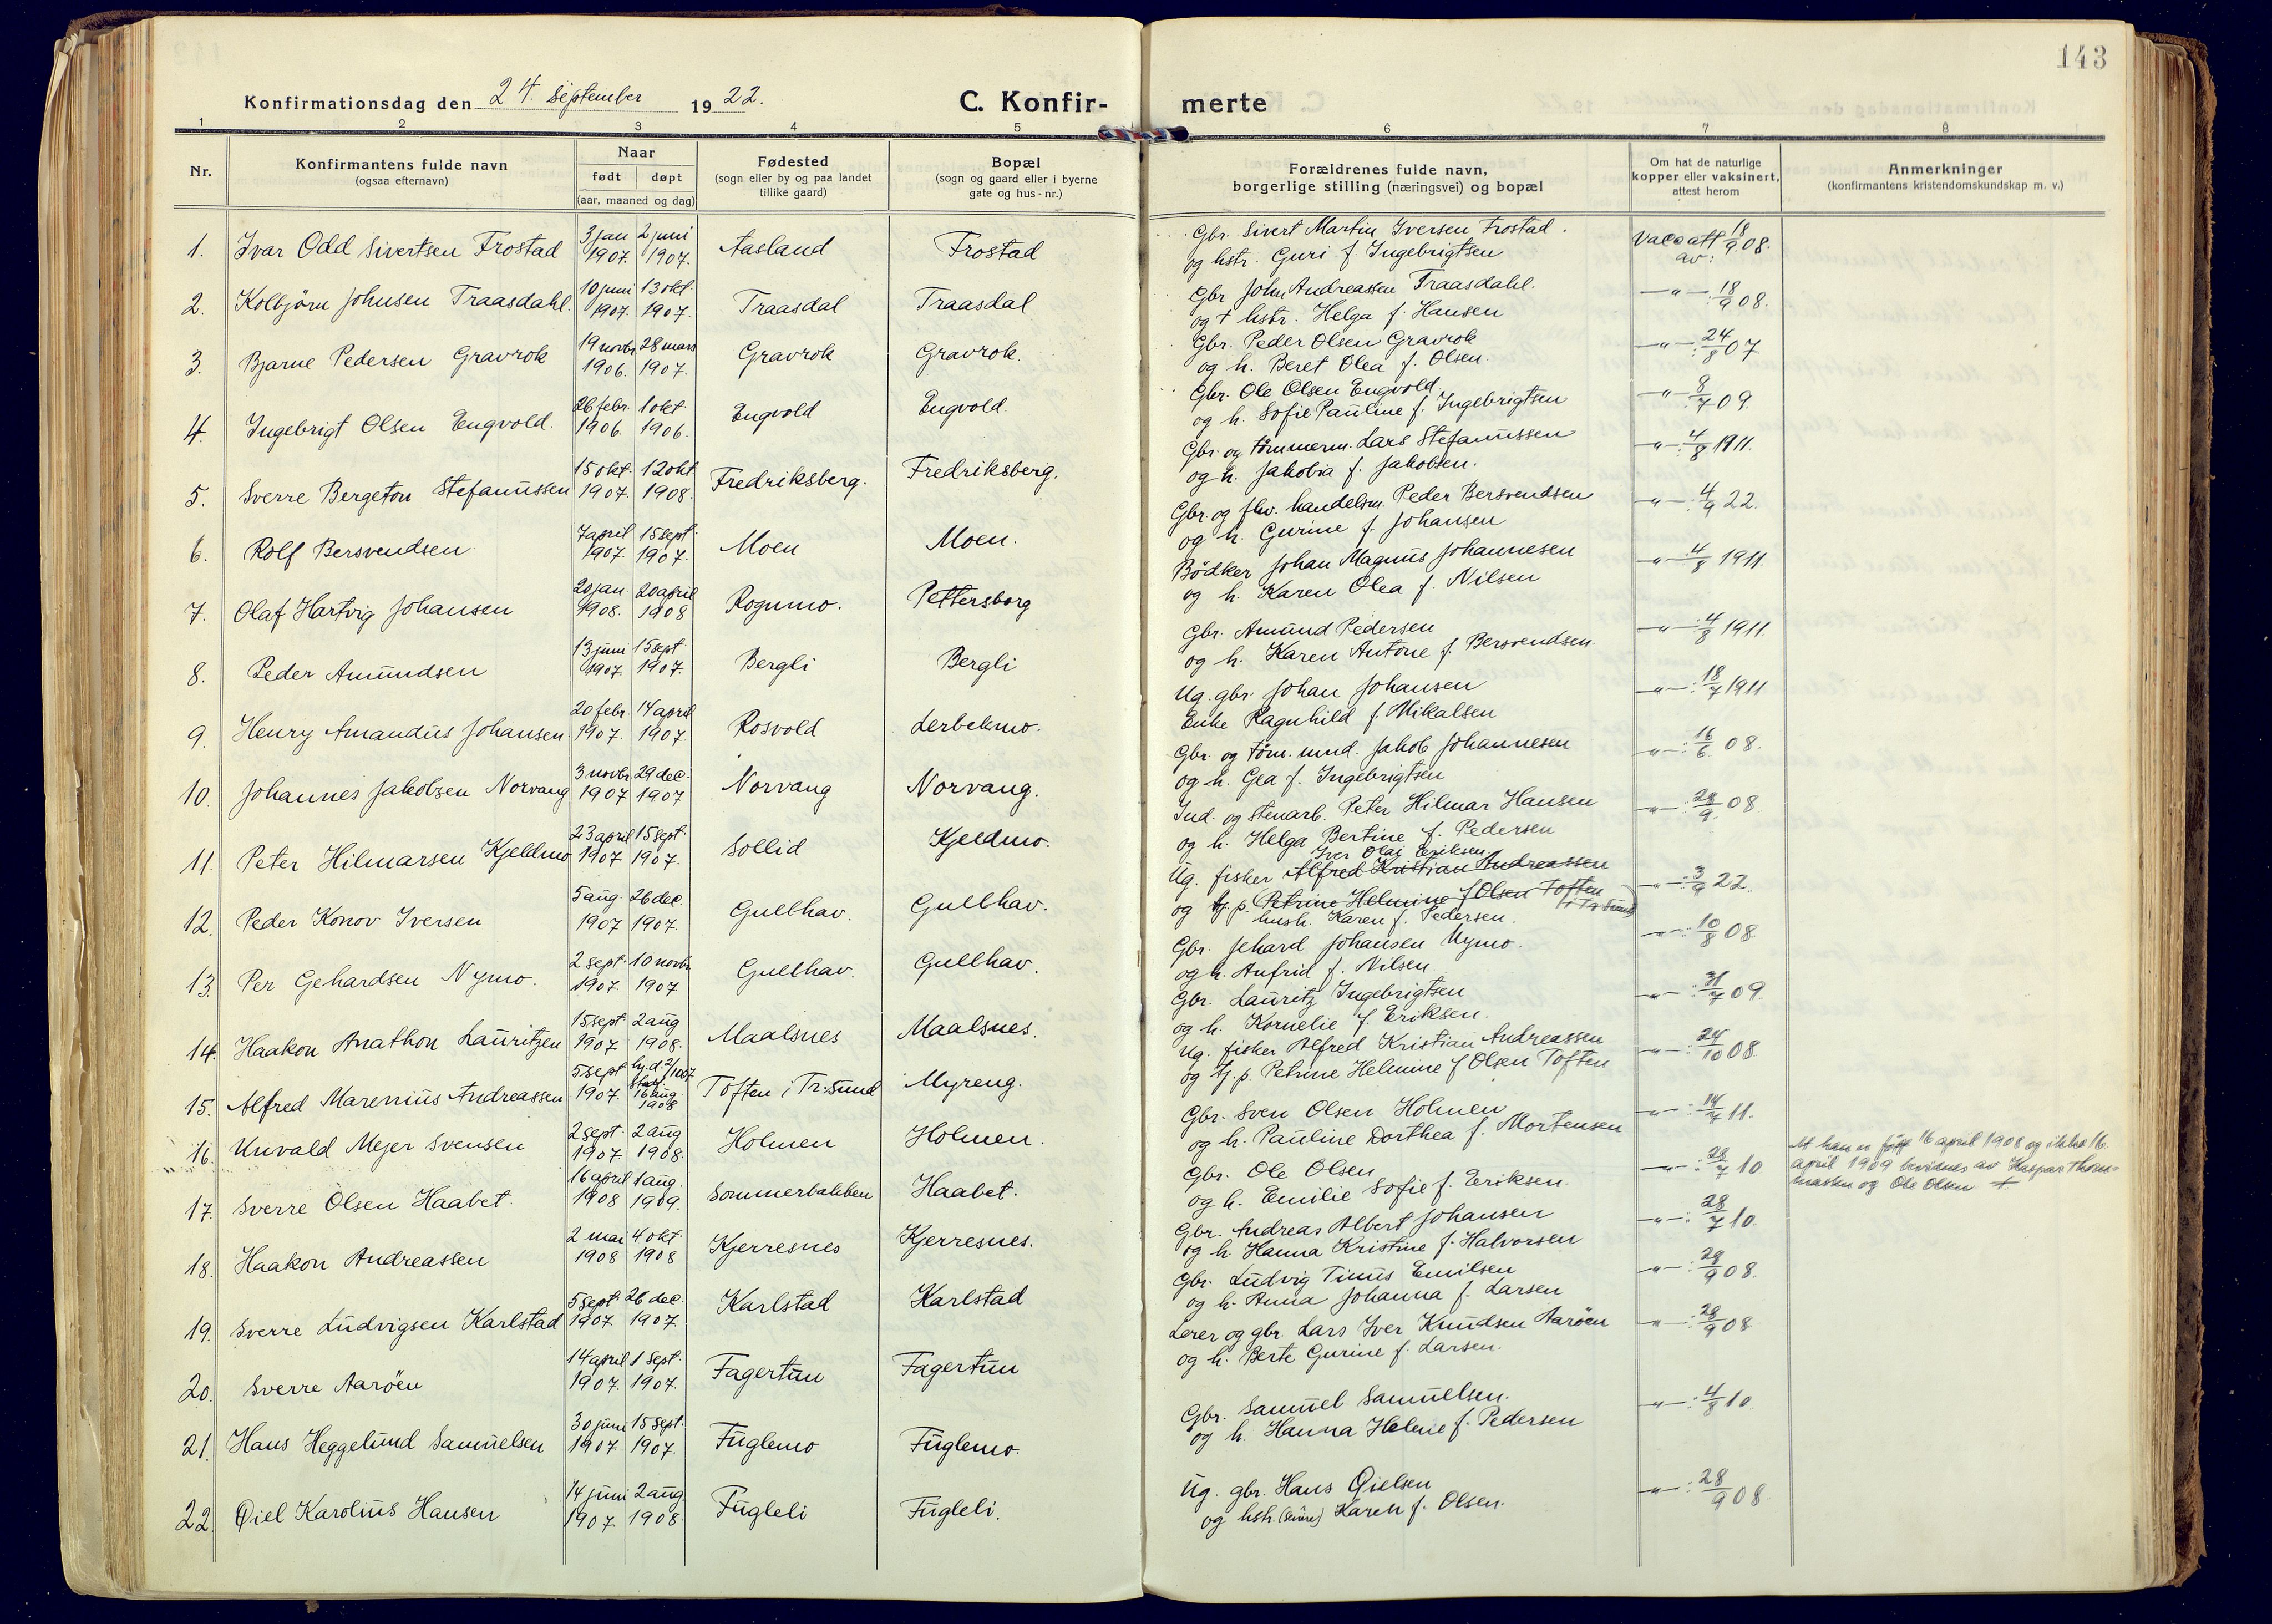 143
Konfirmationsdag den 24. September 1922.
C. Konfirmerte
1 2 3 4 5 6 7 8
Nr.
Konfirmantens fulde navn
(ogsaa efternavn)
Naar
født døpt
(aar, maaned og dag)
Fødested
(sogn eller by og paa landet
tillike gaard)
Bopæl
(sogn og gaard eller i byerne
gate og hus-nr.)
Forældrenes fulde navn,
borgerlige stilling (næringsvei) og bopæl
Om hat de naturlige
kopper eller vaksinert,
attest herom
Anmerkninger
(konfirmantens kristendomskundskap m. v.)
1. Ivar Odd Sivertsen Frostad 3 jan 1907. 2 juni 1907. Aasland Frostad
Gbr. Sivert Martin Iversen Frostad.
og hstr. Guri f. Ingebrigtsen
Vacc att av: 18/9 08.
2. Kolbjörn Johnsen Traasdahl. 10 juni 1907. 13 okt. 1907. Traasdal Traasdal
Gbr John Andreassen Traasdahl.
og + hstr. Helga f. Hansen
—"—: 18/9 08.
3. Bjarne Pedersen Gravrok 19 novbr 1906. 28 mars 1907. Gravrok Gravrok.
Gbr. Peder Olsen Gravrok
og h. Beret Olea f. Olsen.
—"—: 24/8 07
4. Ingebrigt Olsen Engvold. 26 febr. 1906. 1 okt. 1906. Engvold Engvold.
Gbr. Ole Olsen Engvold.
og h. Sofie Pauline f. Ingebrigtsen
—"—: 8/7 09.
5. Sverre Bergeton Stefanussen 15 okt. 1907. 12 okt. 1908. Fredriksberg. Fredriksberg.
Gbr. og tömmerm. Lars Stefanussen
og h. Jakobia f. Jakobsen.
—"—: 4/8 1911.
6. Rolf Bersvendsen 7 april 1907. 15 sept. 1907. Moen Moen.
Gbr. og fhv. handelsm. Peder Bersvendsen
og h. Gurine f. Johansen
—"—: 4/9 22.
7. Olaf Hartvig Johansen 20 jan 1908. 20 april 1908 Rognmo. Pettersborg
Bödker Johan Magnus Johannesen
og h. Karen Olea f. Nilsen
—"—: 4/8 1911.
8. Peder Amundsen 13 juni 1907. 15 sept. 1907. Bergli Bergli
Gbr. Amund Pedersen
og h. Karen Antone f. Bersvendsen
—"—: 4/8 1911.
9. Henry Amandus Johansen 20 febr. 1907. 14 april 1907. Rosvold Lerbekmo.
Ug. gbr. Johan Johansen
Enke Ragnhild f. Mikalsen
—"—: 18/7 1911
10. Johannes Jakobsen Norvang 3 novbr. 1907 29 dec. 1907 Norvang Norvang.
Gbr. og töm. mnd. Jakob Johannesen
og h. Gea f. Ingebrigtsen
—"—: 16/6 08.
11. Peter Hilmarsen Kjeldmo 23 april 1907 15 sept. 1907. Sollid Kjeldmo.
Ind. og stenarb. Peter Hilmar Hansen
og h. Helga Bertine f. Pedersen
—"—: 28/9 08.
12. Peder Konov Iversen 5 aug. 1907 26 dec. 1907. Gullhav. Gullhav.
Iver Olai Eriksen.
Ug. fisker Alfred Kristian Andreassen
og tj. p. Petrine Helmine f Olsen Toften i Tr. sund
hush. Karen f. Pedersen.
—"—: 3/9 22.
13. Per Gehardsen Nymo. 2 sept. 1907. 10 novbr. 1907 Gullhav. Gullhav.
Gbr. Jehard Johansen Nymo.
og h. Anfrid f. Nilsen.
—"—: 10/8 08.
14. Haakon Anathon Lauritzen 15 sept 1907 2 aug 1908. Maalsnes Maalsnes.
Gbr. Lauritz Ingebrigtsen
og h. Kornelie f. Eriksen.
—"—: 31/7 09.
15. Alfred Marenius Andreassen 5 sept 1907. hj.d. 2/1 1907. stadf. 16 aug 1908 Toften i Tr. sund Myreng.
Ug. fisker Alfred Kristian Andreassen
og tj. p. Petrine Helmine f Olsen Toften
—"—: 24/10 08.
16. Unvald Mejer Svensen 2 sept. 1907. 2 aug 1908. Holmen Holmen.
Gbr. Sven Olsen Holmen
og h. Pauline Dorthea f. Mortensen
—"—: 14/7 11.
17. Sverre Olsen Haabet. 16 april 1908 1 aug. 1909. Sommerbakken Haabet.
Gbr. Ole Olsen
og h. Emilie Sofie f. Eriksen.
—"—: 28/7 10
At han er født 16 april 1908 og ikke 16.
april 1909 bevidnes av Kaspar Thom-
massen og Ole Olsen +
18. Haakon Andreassen 2 mai 1908 4 okt. 1908 Kjerresnes Kjerresnes.
Gbr. Andreas Albert Johansen
og h. Hanna Kristine f. Halvorsen
—"—: 28/7 10.
19. Sverre Ludvigsen Karlstad 5 sept. 1907 26 dec. 1907. Karlstad Karlstad
Gbr. Ludvig Tinus Emilsen
og h. Anna Johanna f. Larsen
—"—: 29/9 08.
20. Sverre Aaröen 14 april 1907. 1 sept. 1907. Fagertun Fagertun
Lærer og gbr. Lars Iver Knudsen Aaröen
og h. Berte Gurine f. Larsen.
—"—: 28/9 08
21. Hans Heggelund Samuelsen 30 juni 1907. 15 sept. 1907. Fuglemo Fuglemo.
Gbr. Samuel Samuelsen.
og h. Hanna Helene f. Pedersen
—"—: 4/8 10.
22. Qiel Karolius Hansen 14 juni 1907 2 aug 1908. Fugleli Fugleli.
Ug. gbr. Hans Qielsen
og hstr. Karen f. Olsen.
—"—: 28/9 08.